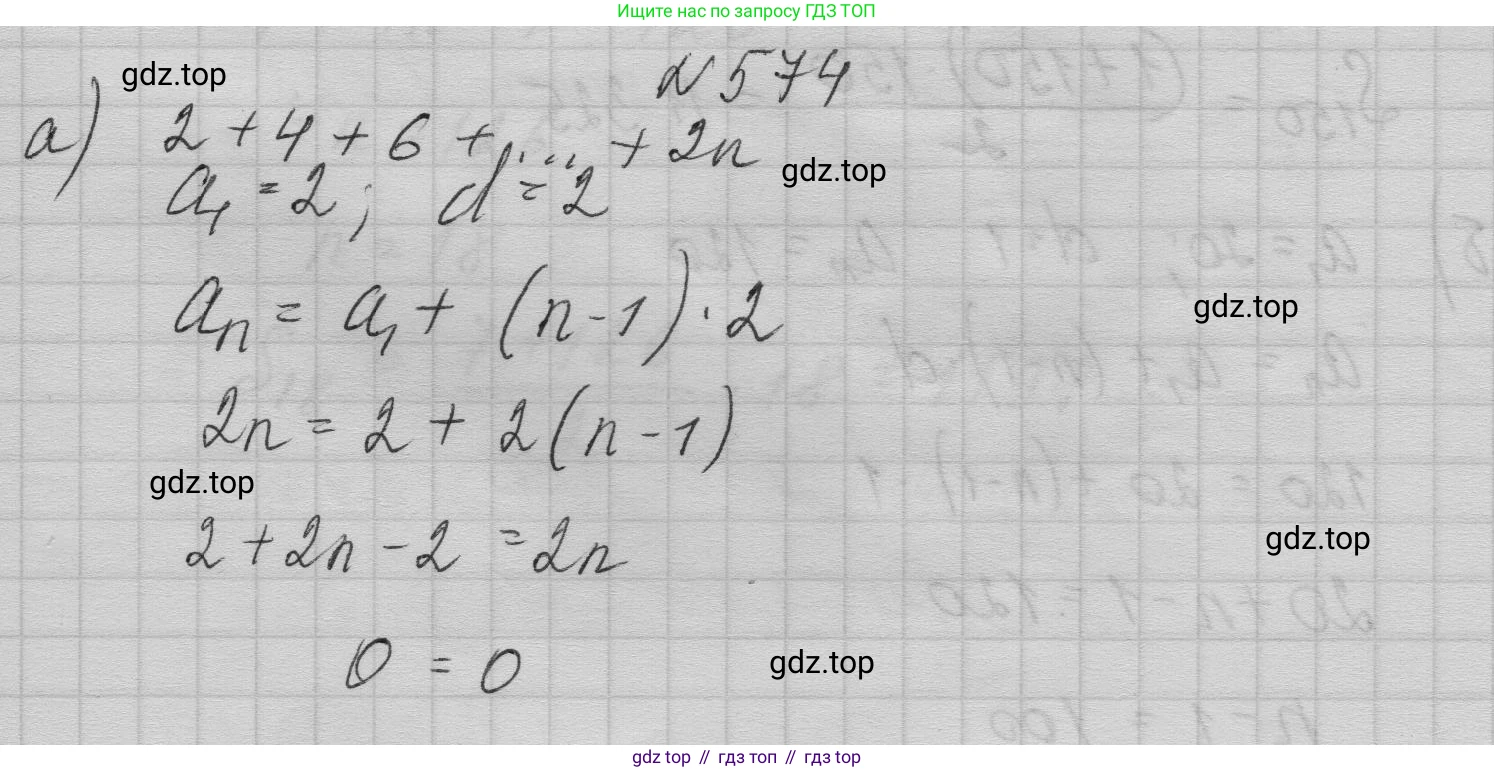 Ищите нас по запросу ГДЗ ТОП
gdz.top
№ 574
а) 2 + 4 + 6 + .... + 2n
gdz.top
a₁ = 2; d = 2
gdz.top
aₙ = a₁ + (n - 1) · 2
2n = 2 + 2(n - 1)
gdz.top
2 + 2n - 2 = 2n
gdz.top
0 = 0
gdz.top
gdz top // гдз топ // гдз top